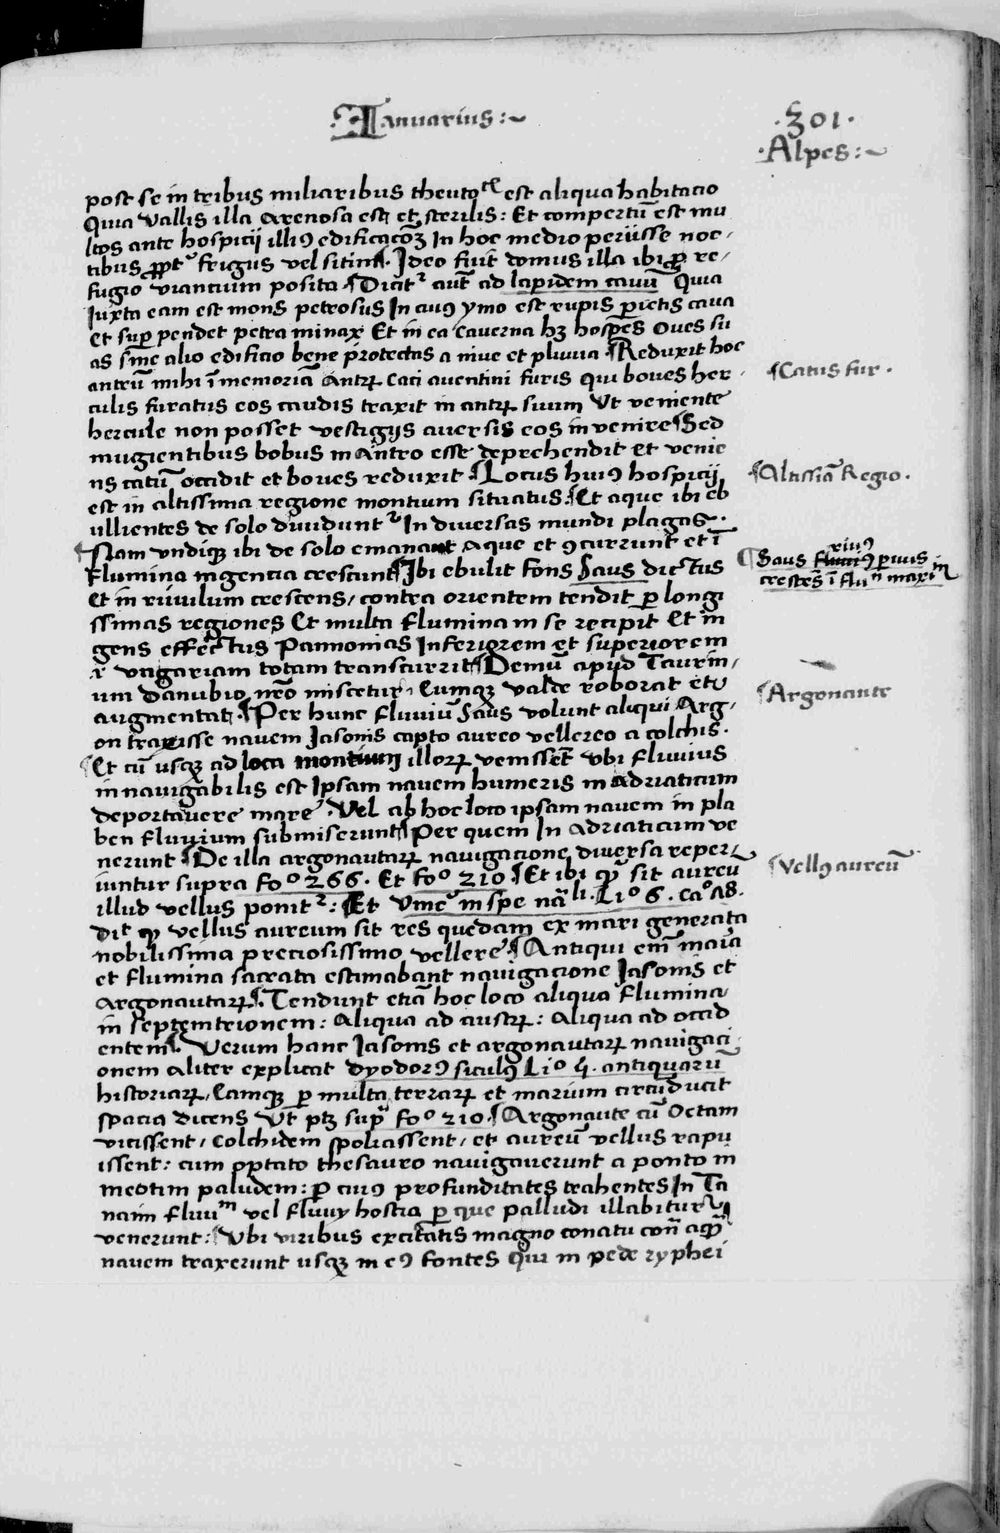 Ianuarius:~
.301.
.Alpes:~
post se in tribus miliaribus theuto^cl est aliqua habitacio
Quia Vallis illa arenosa est et sterilis: Et compertū est mu
ltos ante hospicij illi9 edificacōꝫ In hoc medio perijsse noc-
tibus ꝓpt^r frigus vel sitim. Ideo fuit domus illa ibi ꝓ re-
fugio viantium posita ¶Dicit^r aūt ad lapidem cauū Quia
Iuxta eam est mons petrosus In cui9 ymo est rupis ꝑietis caua
et suꝑ pendet petra minax Et in ea Cauerna hꝫ hospēs oues su
as sine alio edificio bene protectas a niue et pluuia ¶Reduxit hoc
antrū mihi ī memoriā Antrꝝ Caci auentini furis qui boues her-
culis furatus eos caudis traxit in antrꝝ suum Vt veniente
hercule non posset vestigijs auersis eos inuenire ¶Sed
mugientibus bobus in Antro esse deprehendit et venie
ns catū occidit et boues reduxit ¶Locus hui9 hospicij
est in altissima regione montium situatus ¶Et aque ibi eb
ullientes de solo diuidunt^r In diuersas mundi plagas.
¶Nam vndiqꝫ ibi de solo emanant aque et 9currunt et ī
flumina ingencia crescunt ¶Ibi ebulit fons Saus dictus
Et in riuulum crescens, contra orientem tendit ꝑ longi
ssimas regiones Et multa flumina in se recipit Et in
gens effectus Pannonias Inferiorem et superiorem
i vngariam totam transcurrit ¶Demū apud Taurin,
um Danubio nr̄o miscetur, Eumqꝫ valde roborat et
augmentat. ¶Per hunc fluuiū Saus volunt aliqui Arg,
on traxisse nauem Jasonis capto aureo vellereo a colchis.
¶Et cū usqꝫ ad loca montium illorꝝ venissēt vbi fluuius
innauigabilis est Ipsam nauem humeris in Adriaticum
deportauere mare. Vel ab hoc loco ipsam nauem in pla
ben fluuium submiserunt ¶Per quem In Adriaticum ve
nerunt ¶De illa argonautarꝝ nauigacione diuersa reper-
iuntur supra fo° 266. Et fo° 210. ¶Et ibi qͥ sit aureū
illud vellus ponit^r: Et Vinc̄ in spe nāli. Li° 6. Ca° 48.
Dit ꝙ vellus aureum sit res quedam ex mari generata
nobilissima preciosissimo vellere ¶Antiqui em̄ maria
et flumina sacrata estimabant nauigacione Jasonis et
Argonautarꝝ ¶Tendunt etiā hoc loco aliqua flumina
in septemtrionem: Aliqua ad austrꝝ: Aliqua ad occid
entem. Verum hanc Jasonis et argonautarꝝ nauigaci
onem aliter explicat dyodor9 sicul9 Li° 4. antiquarū
historiarꝝ, Eamqꝫ ꝑ multa terrarꝝ et marium circūducit
spacia dicens Vt ptꝫ supͣ fo° 210. ¶Argonaute cū Oetam
vicissent, Colchidem spoliassent, et aureū vellus rapu
issent: cum optato thesauro nauigauerunt a ponto in
meotim paludem: ꝑ cui9 profunditates trahentes In Ta
naim fluuiͫ vel fluuij hostia ꝑ que palludi illabitur
venerunt: ¶Vbi viribus excitatis magno conatu
nauem traxerunt usqꝫ in e9 fontes Qui in pede ryphei
¶Catus fur.
¶Altissiā Regio.
¶Saus riu9 ꝑuus
crescēs ī fluͫ maxiͫ
¶Argonaute
¶Vell9 aureū